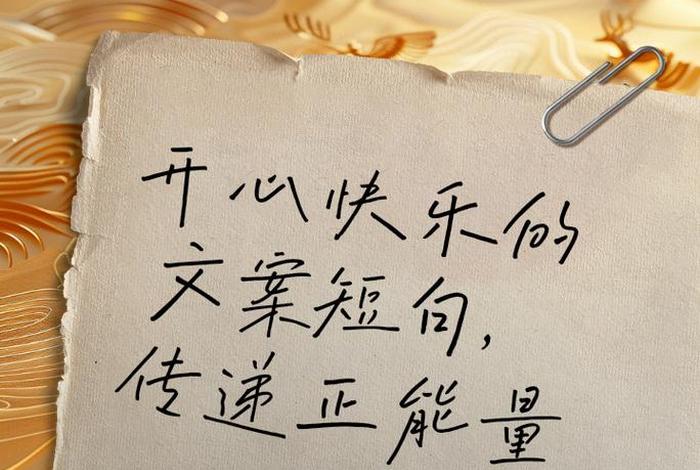 开心快乐的
文案短句,
传递正能量